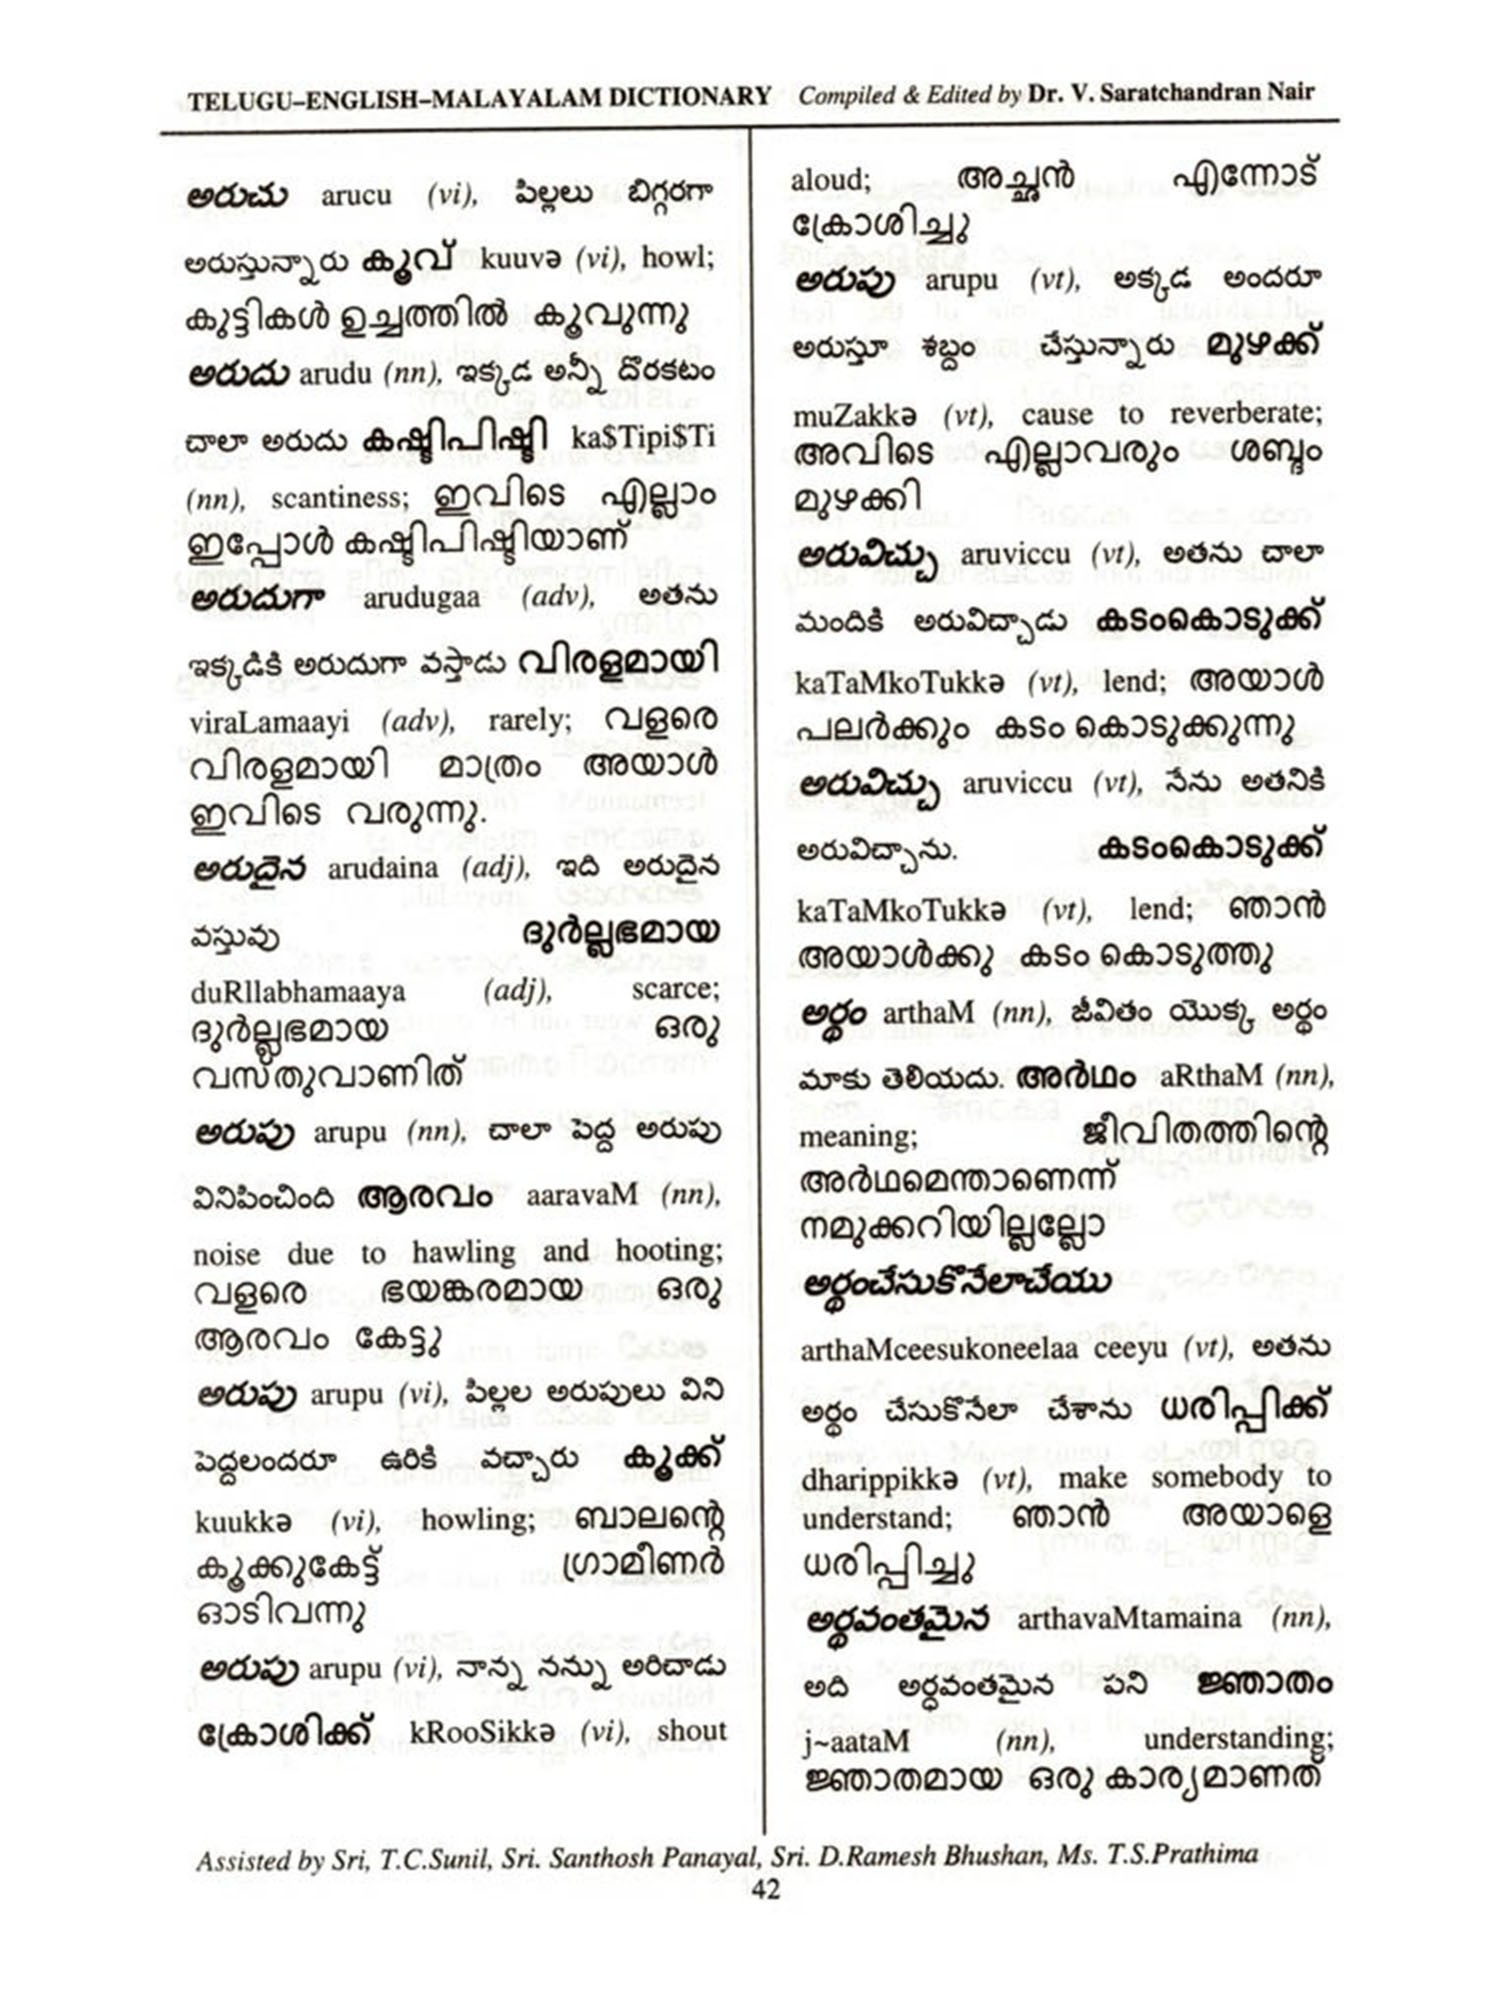 TELUGU–ENGLISH–MALAYALAM DICTIONARY Compiled & Edited by Dr. V. Saratchandran Nair
అరుచు arucu (vi), పిల్లలు బిగ్గరగా
అరుస్తున్నారు കൂവ് kuuvə (vi), howl;
കുട്ടികൾ ഉച്ചത്തിൽ കൂവുന്നു
అరుదు arudu (nn), ఇక్కడ అన్నీ దొరకటం
చాలా అరుదు കഷ്ടിപിഷ്ടി ka$Tipi$Ti
(nn), scantiness; ഇവിടെ എല്ലാം
ഇപ്പോൾ കഷ്ടിപിഷ്ടിയാണ്
అరుదుగా arudugaa (adv), అతను
ఇక్కడికి అరుదుగా వస్తాడు വിരളമായി
viraLamaayi (adv), rarely; വളരെ
വിരളമായി മാത്രം അയാൾ
ഇവിടെ വരുന്നു.
అరుదైన arudaina (adj), ఇది అరుదైన
వస్తువు ദുർല്ലഭമായ
duRllabhamaaya (adj), scarce;
ദുർല്ലഭമായ ഒരു
വസ്തുവാണിത്
అరుపు arupu (nn), చాలా పెద్ద అరుపు
వినిపించింది ആരവം aaravaM (nn),
noise due to hawling and hooting;
വളരെ ഭയങ്കരമായ ഒരു
ആരവം കേട്ടു
అరుపు arupu (vi), పిల్లల అరుపులు విని
పెద్దలందరూ ఉరికి వచ్చారు കൂക്ക്
kuukkə (vi), howling; ബാലന്റെ
കൂക്കുകേട്ട് ഗ്രാമീണർ
ഓടിവന്നു
అరుపు arupu (vi), నాన్న నన్ను అరిచాడు
ക്രോശിക്ക് kRooSikkə (vi), shout
aloud; അച്ഛൻ എന്നോട്
ക്രോശിച്ചു
అరుపు arupu (vt), అక్కడ అందరూ
అరుస్తూ శబ్దం చేస్తున్నారు മുഴക്ക്
muZakkə (vt), cause to reverberate;
അവിടെ എല്ലാവരും ശബ്ദം
മുഴക്കി
అరువిచ్చు aruviccu (vt), అతను చాలా
మందికి అరువిచ్చాడు കടംകൊടുക്ക്
kaTaMkoTukkə (vt), lend; അയാൾ
പലർക്കും കടം കൊടുക്കുന്നു
అరువిచ్చు aruviccu (vt), నేను అతనికి
అరువిచ్చాను. കടംകൊടുക്ക്
kaTaMkoTukkə (vt), lend; ഞാൻ
അയാൾക്കു കടം കൊടുത്തു
అర్థం arthaM (nn), జీవితం యొక్క అర్థం
మాకు తెలియదు. അർഥം aRthaM (nn),
meaning; ജീവിതത്തിന്റെ
അർഥമെന്താണെന്ന്
നമുക്കറിയില്ലല്ലോ
అర్థంచేసుకొనేలాచేయు
arthaMceesukoneelaa ceeyu (vt), అతను
అర్థం చేసుకొనేలా చేశాను ധരിപ്പിക്ക്
dharippikkə (vt), make somebody to
understand; ഞാൻ അയാളെ
ധരിപ്പിച്ചു
అర్థవంతమైన arthavaMtamaina (nn),
అది అర్ధవంతమైన పని ജ്ഞാതം
j~aataM (nn), understanding;
ജ്ഞാതമായ ഒരു കാര്യമാണത്
Assisted by Sri, T.C.Sunil, Sri. Santhosh Panayal, Sri. D.Ramesh Bhushan, Ms. T.S.Prathima
42